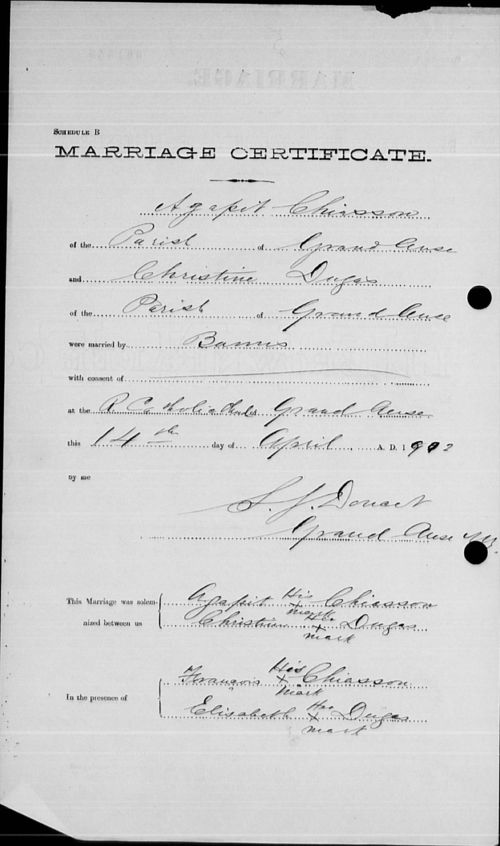 SCHEDULE B
MARRIAGE CERTIFICATE.
Agapit Chiasson
of the Parish of Grand Anse
and Christine Dugas
of the Parish of Grand Anse
were married by Banns
with consent of
at the R Catholic Church Grand Anse
this 14th day of April A. D. 1902
by me
S. J. Doucet
Grand Anse N.B.
This Marriage was solem-
nized between us
Agapit His X mark Chiasson
Christine Her X mark Dugas
In the presence of
François His X mark Chiasson
Elisabeth Her X mark Dugas